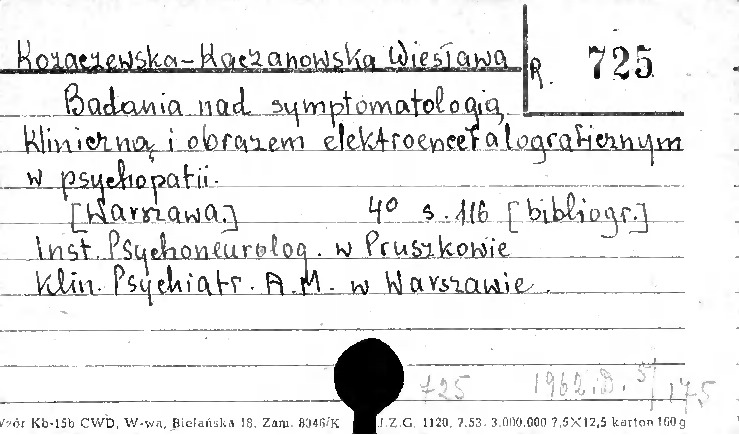 Kozaczewska-Kaczanowska Wiesława
R. 725
Badania nad symptomatologią
kliniczną i obrazem elektroencefalograficznym
w psychopatii.
[Warszawa.] 4° s. 116 [bibliogr.]
Inst. Psychoneurolog. w Pruszkowie
Klin. Psychiatr. A.M. w Warszawie.
725 1962.D. 5/175
Wzór Kb-15b CWD, W-wa, Bielańska 18, Zam. 8046/K J.Z.G. 1120. 7.53. 3.000.000 7,5×12,5 karton 160 g